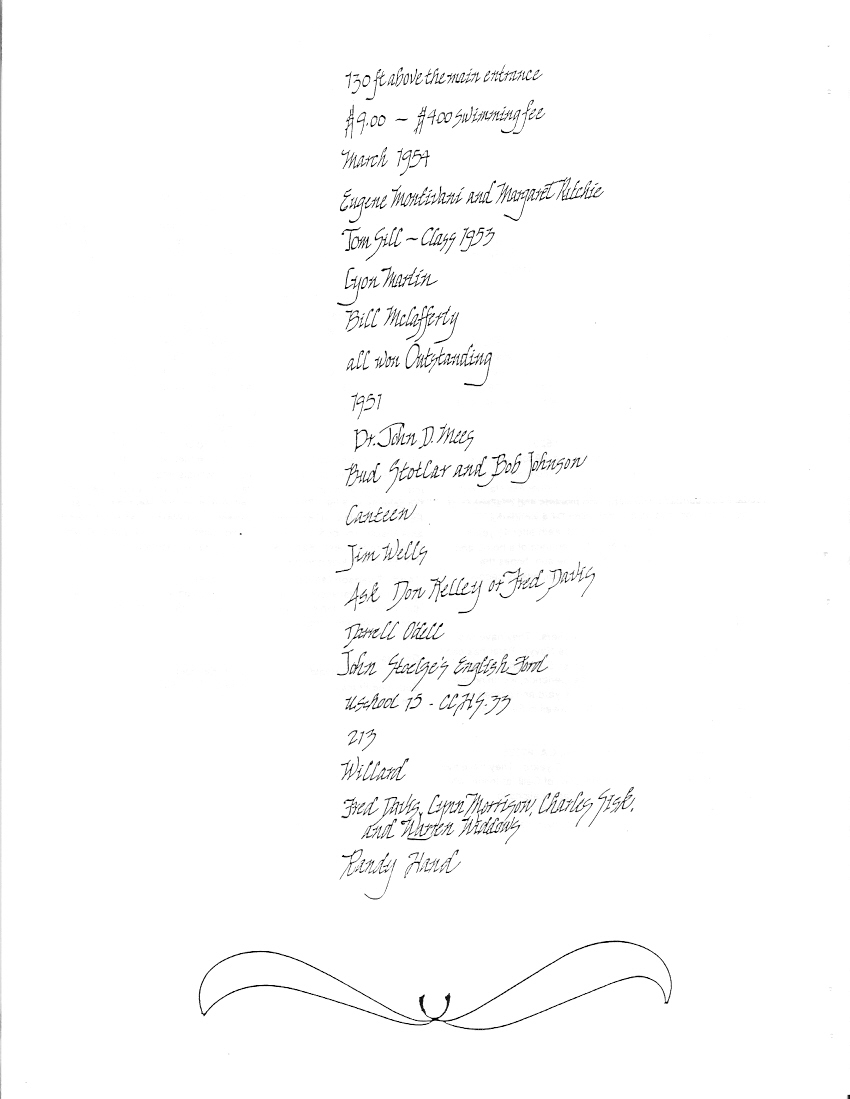 130 ft above the main entrance
$9.00 ~ $4.00 swimming fee
March 1954
Eugene Montivani and Margaret Ritchie
Tom Gill ~ Class 1953
Lyon Martin
Bill Mclafferty
all won Outstanding
1951
Dr. John D. Mees
Bud Stotlar and Bob Johnson
Canteen
Jim Wells
Ask Don Kelley or Fred Davis
Darrell Odell
John Stoelze's English Ford
U.school 15 - CCHS.33
213
Willard
Fred Davis, Lynn Morrison, Charles Sisk,
and Warren Widdows
Randy Hand